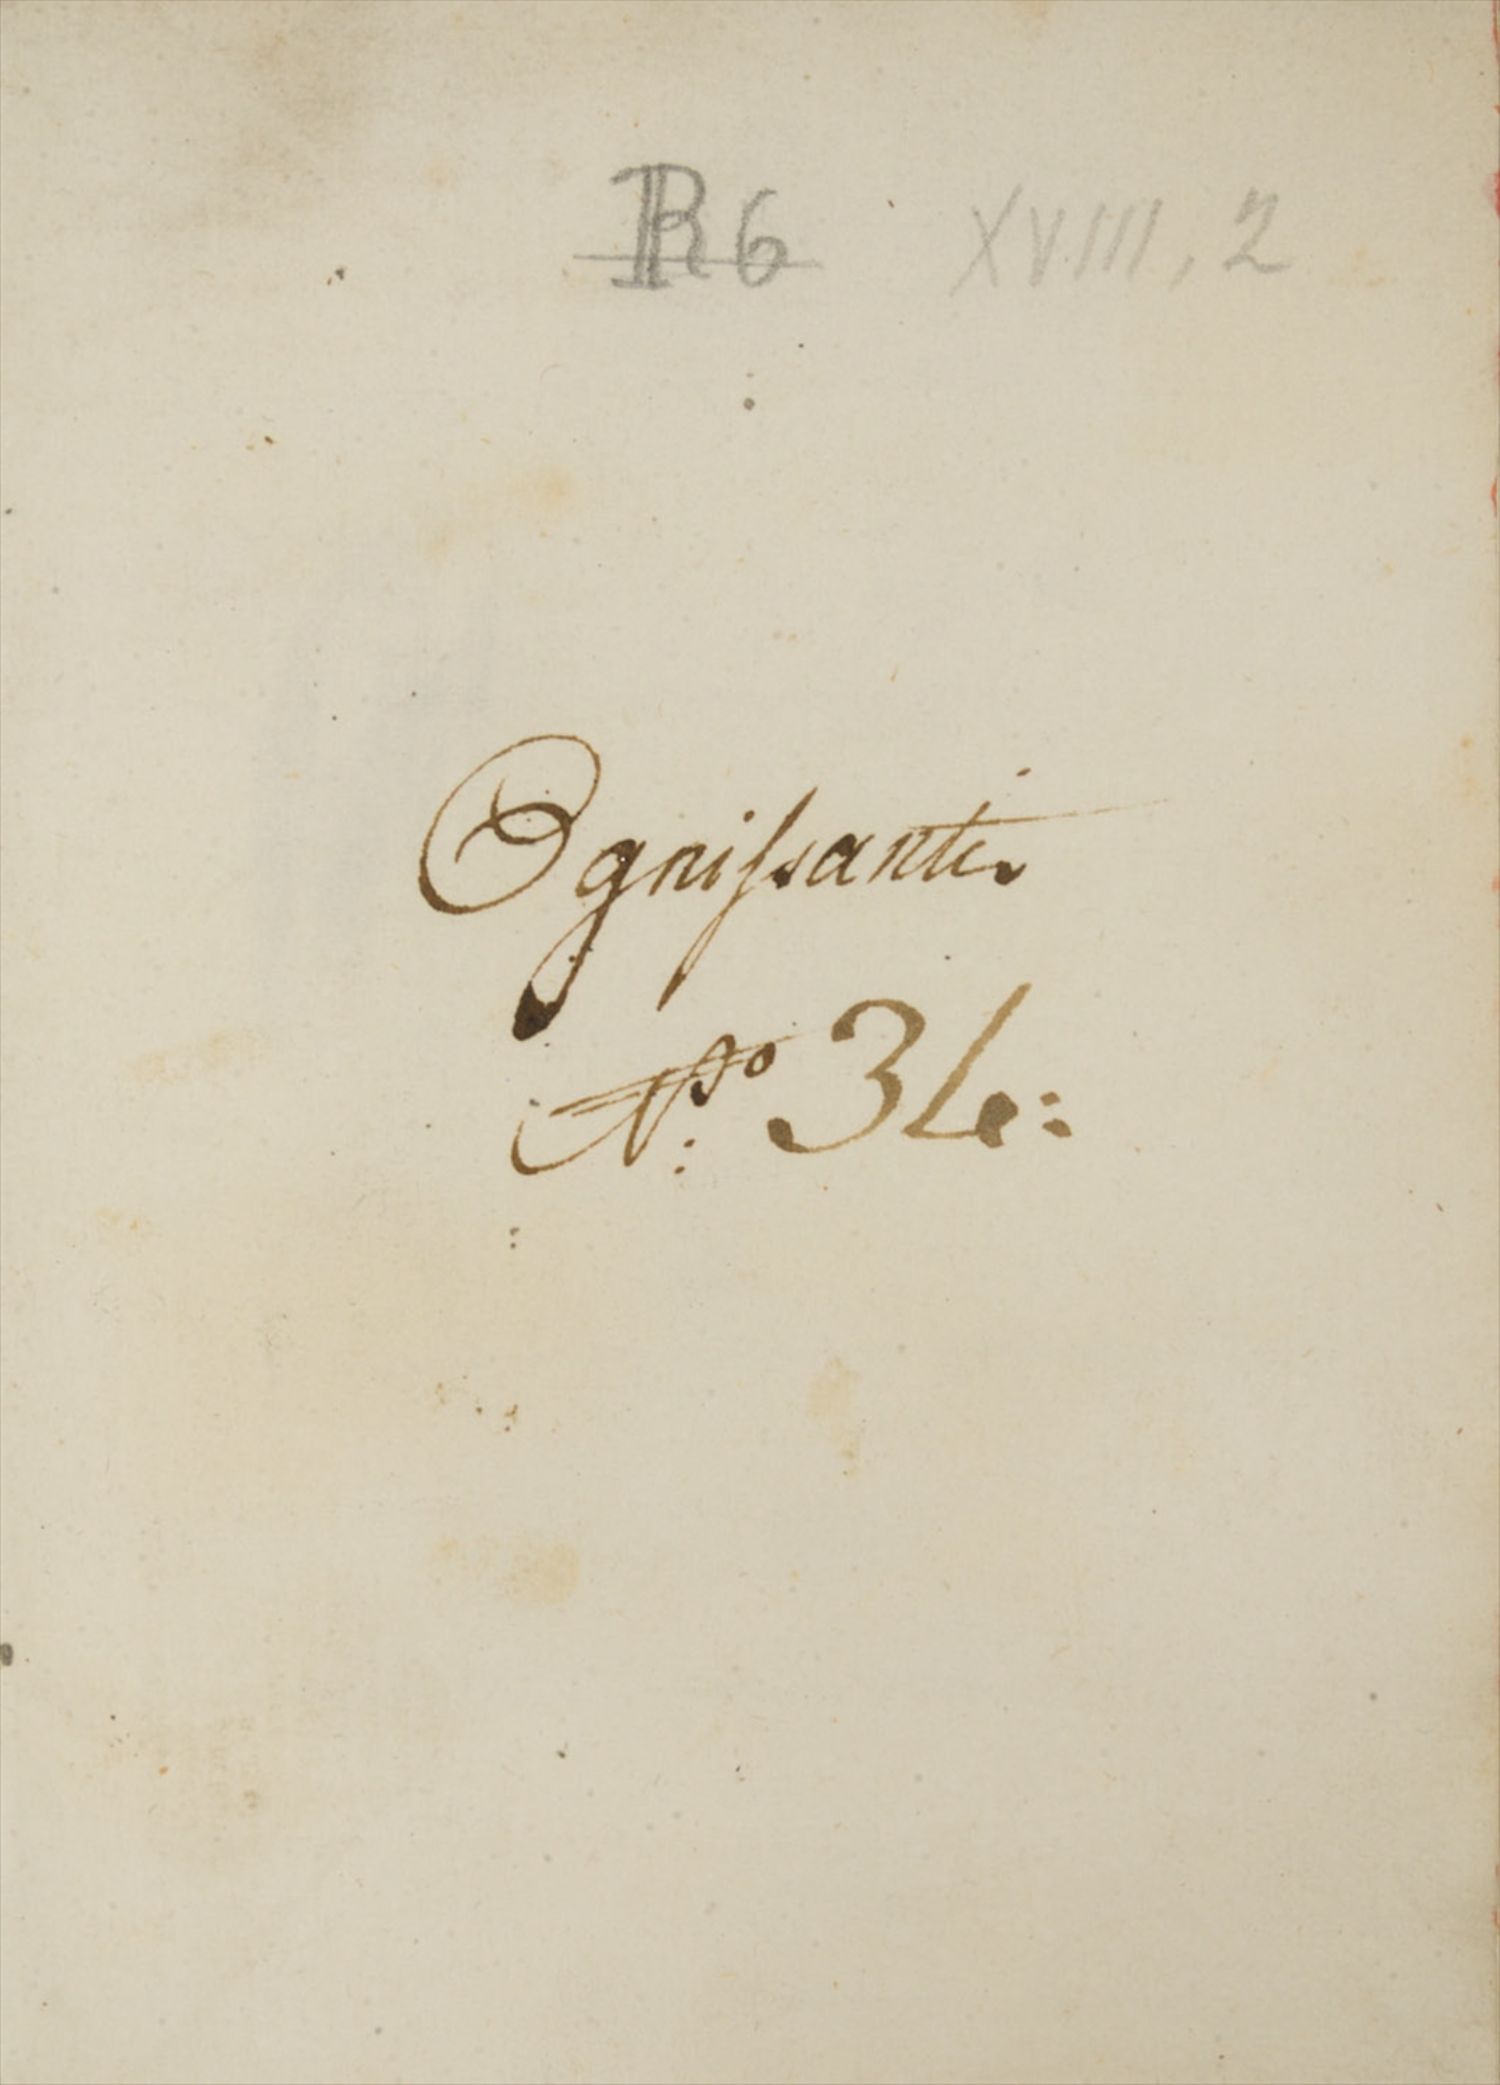 R 6 XVIII, 2
Ognissanti
No: 34: